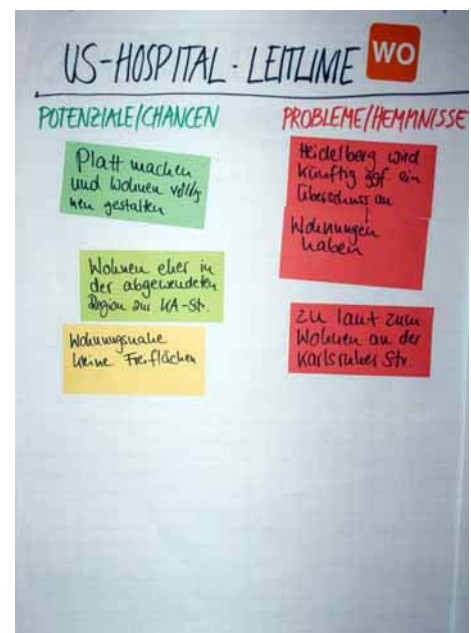 US-HOSPITAL - LEITLINIE WO
POTENZIALE/CHANCEN
Platt machen
und Wohnen völlig
neu gestalten
Wohnen eher in
der abgewendeten
Region zur KA-Str.
Wohnungsnahe
kleine Freiflächen
PROBLEME/HEMMNISSE
Heidelberg wird
künftig ggf. ein
Überschuss an
Wohnungen
haben
Zu laut zum
Wohnen an der
Karlsruher Str.